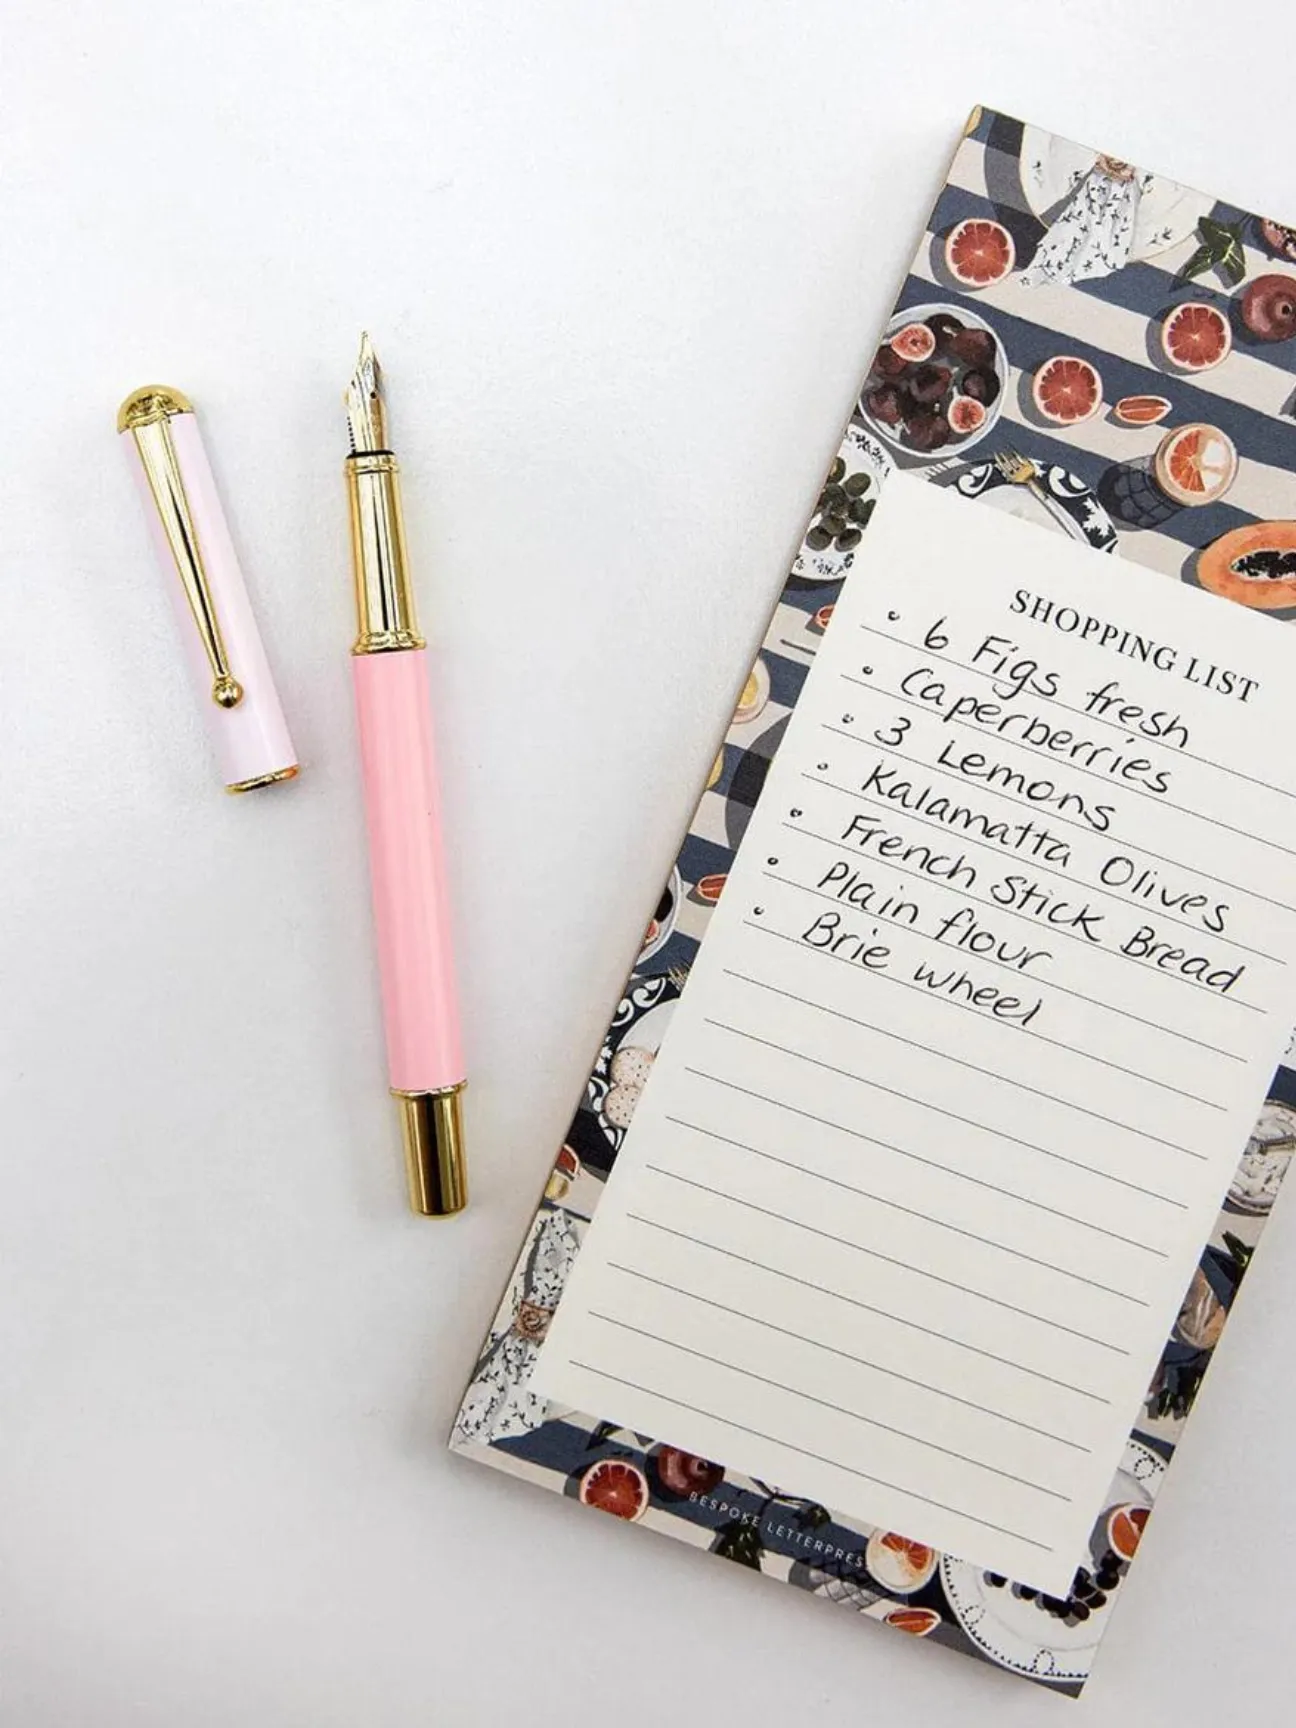 SHOPPING LIST
• 6 Figs fresh
• Caperberries
• 3 Lemons
• Kalamatta Olives
• French Stick Bread
• Plain flour
• Brie wheel
BESPOKE LETTERPRES